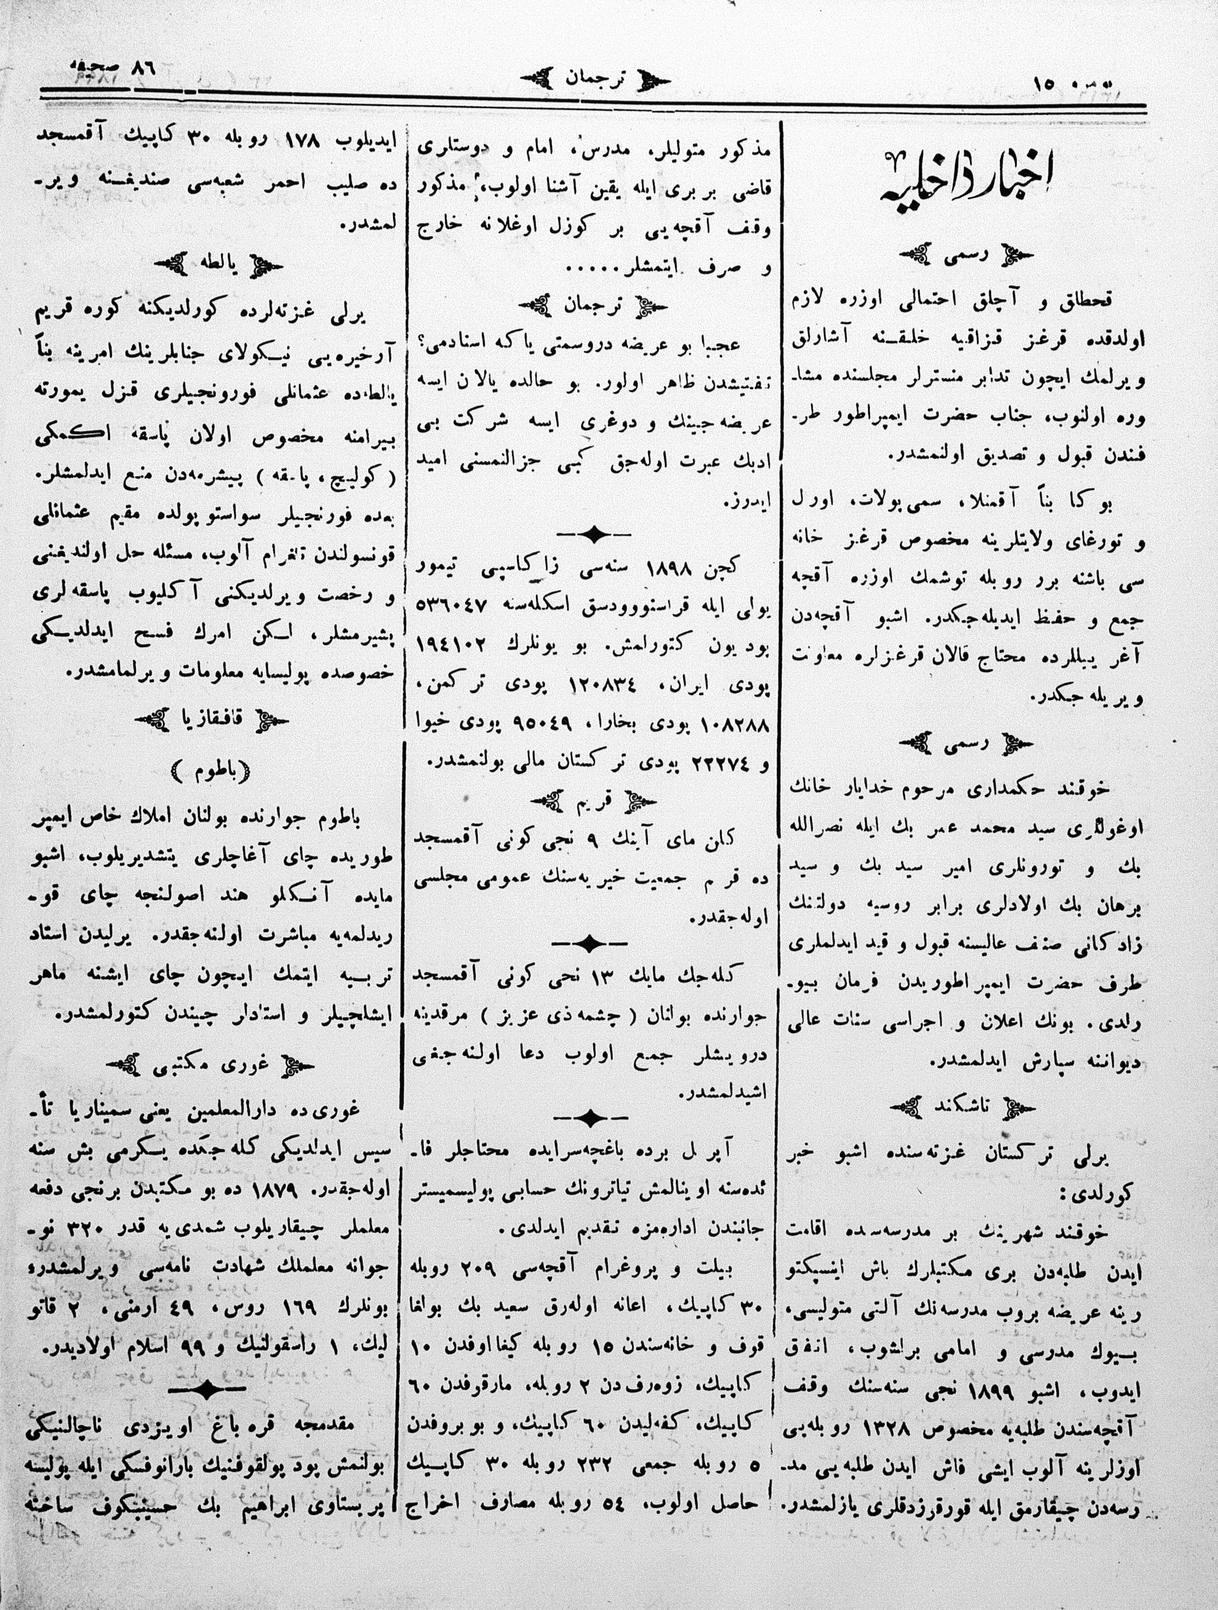 نومره ١٥
ترجمان
٨٦ صحیفه
اخبار داخلیه
رسمی
قحطلق و آچلق احتمالی اوزره لازم
اولدقده قرغز قزاقیه خلقنه آشارلق
ویرلمك ایچون تدابر منسترلر مجلسنده مشا۔
وره اولنوب، جناب حضرت ایمپراطور طر۔
فندن قبول و تصدیق اولنمشدر.
بوكا بنأ آقمنلا، سمی پولات، اورل
و تورغای ولایتلرینه مخصوص قرغز خانه
سی باشنه برر روبله توشمك اوزره آقچه
جمع و حفظ ایدیله جكدر. اشبو آقچه‌دن
آغر ییللرده محتاج قالان قرغزلره معاونت
ویریله جكدر.
رسمی
خوقند حكمداری مرحوم خدایار خانك
اوغوللری سید محمد عمر بك ایله نصرالله
بك و تورونلری امیر سید بك و سید
برهان بك اولادلری برابر روسیه دولتنك
زادكانی صنف عالیسنه قبول و قید ایدلملری
طرف حضرت ایمپراطوریدن فرمان بیو۔
رلدی. بونك اعلان و اجراسی سنات عالی
دیواننه سپارش ایدلمشدر.
تاشكند
یرلی تركستان غزته‌سنده اشبو خبر
كورلدی:
خوقند شهرینك بر مدرسه‌سده اقامت
ایدن طلبه‌دن بری مكتبلرك باش اینسپكتو
رینه عریضه بروب مدرسه‌نك آلتی متولیسی،
بیوك مدرسی و امامی برلشوب، اتفق
ایدوب، اشبو ١٨٩٩ نجی سنه‌سنك وقف
آقچه‌سندن طلبه‌یه مخصوص ١٣٢٨ روبله‌یی
اوزلرینه آلوب ایشی فاش ایدن طلبه‌یی مد۔
رسه‌دن چیقارمق ایله قورقزدقلری یازلمشدر.
مذكور متولیلر، مدرس، امام و دوستلری
قاضی بربری ایله یقین آشنا اولوب، مذكور
وقف آقچه‌یی بر كوزل اوغلانه خارج
و صرف ایتمشلر.....
ترجمان
عجبا بو عریضه دروسمتی یاكه اسنادمی؟
تفتیشدن ظاهر اولور. بو حالده یالان ایسه
عریضه‌جینك و دوغری ایسه شركت بی
ادبك عبرت اوله‌جق كبی جزالنمسنی امید
ایدرز.
كچن ١٨٩٨ سنه‌سی زاكاسپی تیمور
یولی ایله قراسنووودسق اسكله‌سنه ٥٣٦٠٤٧
پود یون كتورلمش. بو یونلرك ١٩٤١٠٢
پودی ایران، ١٢٠٨٣٤ پودی تركمن،
١٠٨٢٨٨ پودی بخارا، ٩٥٠٤٩ پودی خیوا
و ٢٢٢٧٤ پودی تركستان مالی بولنمشدر.
قریم
كان مای آینك ٩ نجی كونی آقمسجد
ده قرم جمعیت خیریه‌سنك عمومی مجلسی
اوله‌جقدر.
كله‌جك مایك ١٣ نجی كونی آقمسجد
جوارنده بولنان (چشمه‌ذی عزیز) مرقدینه
درویشلر جمع اولوب دعا اولنه‌جغی
اشیدلمشدر.
آپریل برده باغچه‌سرایده محتاجلر فا۔
ئده‌سنه اوینالمش تیاترونك حسابی پولیسمیستر
جانبندن اداره‌مزه تقدیم ایدلدی.
بیلت و پروغرام آقچه‌سی ٢٠٩ روبله
٣٠ كاپیك، اعانه اوله‌رق سعید بك بولغا
قوف و خانه‌سندن ١٥ روبله كیفااوفدن ١٠
كاپیك، زوه‌رف‌دن ٢ روبله، مارقوفدن ٦٠
كاپیك، كفه‌لیدن ٦٠ كاپیك، و بوبروفدن
٥ روبله جمعی ٢٣٢ روبله ٣٠ كاپیك
حاصل اولوب، ٥٤ روبله مصارف اخراج
ایدیلوب ١٧٨ روبله ٣٠ كاپیك آقمسجد
ده صلیب احمر شعبه‌سی صندیغنه ویر۔
لمشدر.
یالطه
یرلی غزته‌لرده كورلدیكنه كوره قریم
آرخیره‌یی نیكولای جنابلرینك امرینه بنأ
یالطه‌ده عثمانلی فورونجیلری قزل یمورته
بیرامنه مخصوص اولان پاسقه اكمكی
(كولیچ، پاسقه) پیشرمه‌دن منع ایدلمشلر.
بعده فورنجیلر سواستوپولده مقیم عثمانلی
قونسولندن تلغرام آلوب، مسئله حل اولندیغنی
و رخصت ویرلدیكنی آكلیوب پاسقه‌لری
پشیرمشلر، لكن امرك فسح ایدلدیكی
خصوصده پولیسایه معلومات ویرلمامشدر.
قافقازیا
(باطوم)
باطوم جوارنده بولنان املاك خاص ایمپر
طوریده چای آغاچلری یتشدیریلوب، اشبو
مایده آنكلو هند اصولنجه چای قو۔
ریدلمه‌یه مباشرت اولنه‌جقدر. یرلیدن استاد
تربیه ایتمك ایچون چای ایشنه ماهر
ایشلچیلر و استادلر چیندن كتورلمشدر.
غوری مكتبی
غوری‌ده دارالمعلمین یعنی سمیناریا تأ۔
سیس ایدلدیكی كله‌جكده یكرمی بش سنه
اوله‌جقدر. ١٨٧٩ ده بو مكتبدن برنجی دفعه
معلملر چیقاریلوب شمدی‌یه قدر ٣٢٠ نو۔
جوانه معلملك شهادت نامه‌سی ویرلمشدر،
بونلرك ١٦٩ روس، ٤٩ ارمنی، ٢ قاتو
لیك، ١ راسقولنیك و ٩٩ اسلام اولادیدر.
مقدمجه قره‌باغ اویزدی ناچالنیكی
بولنمش پود پولقوفنیك بارانوفسكی ایله پولیسه
پریستاوی ابراهیم بك حسینبكوف ساخته